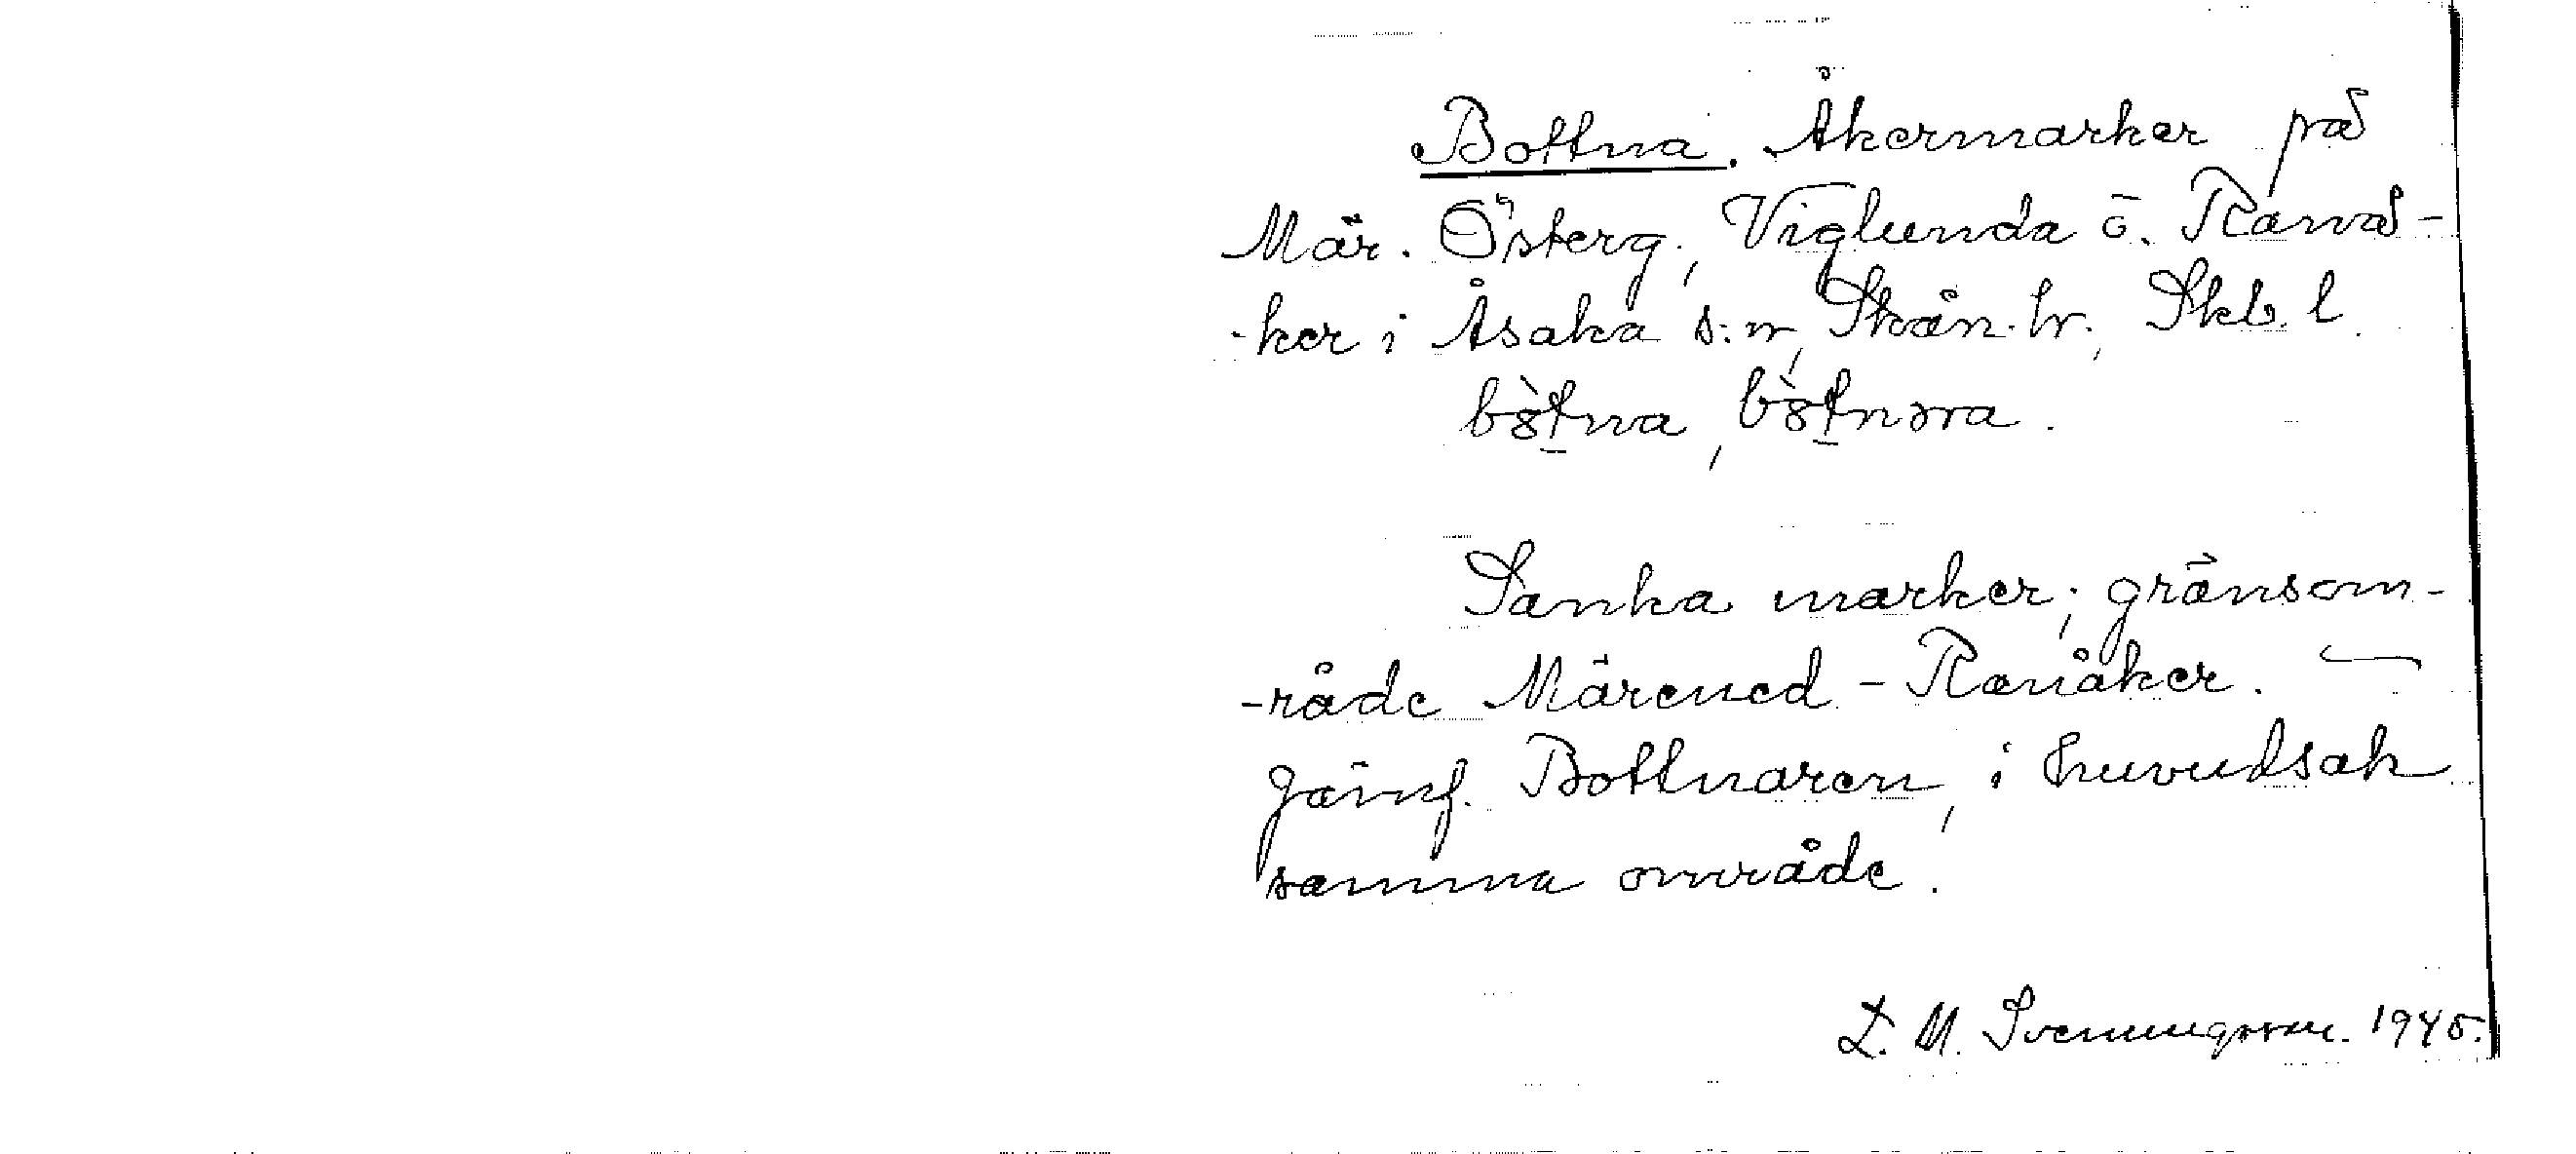 Bottna. Åkermarker på
Mär. Österg., Viglunda o. Ranå-
-ker i Åsaka s:n, Skån. hr., Skb. l.
Sanka marker; gränsom-
-råde Märened - Ranåker. —
Jämf. Bottnaren, i huvudsak
samma område.
L. M. Svenungsson. 1945.